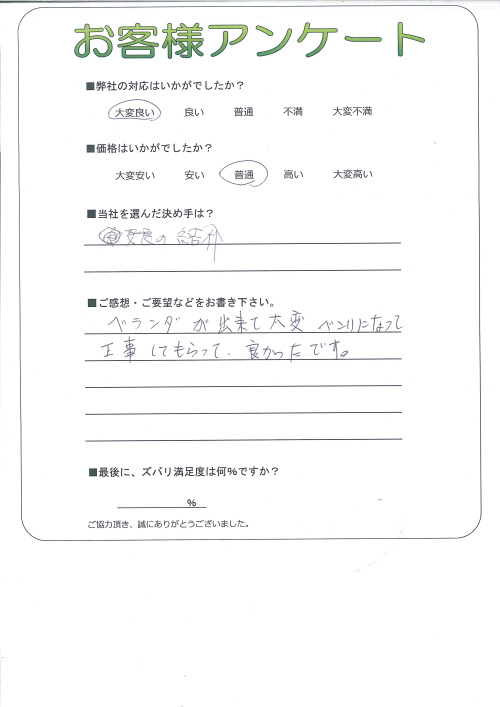 お客様アンケート
■弊社の対応はいかがでしたか？
大変良い 良い 普通 不満 大変不満
■価格はいかがでしたか？
大変安い 安い 普通 高い 大変高い
■当社を選んだ決め手は？
の
■ご感想・ご要望などをお書き下さい。
ベランダが出来て大変 ベンリになって
工事してもらって、良かったです。
■最後に、ズバリ満足度は何%ですか？
%
ご協力頂き、誠にありがとうございました。